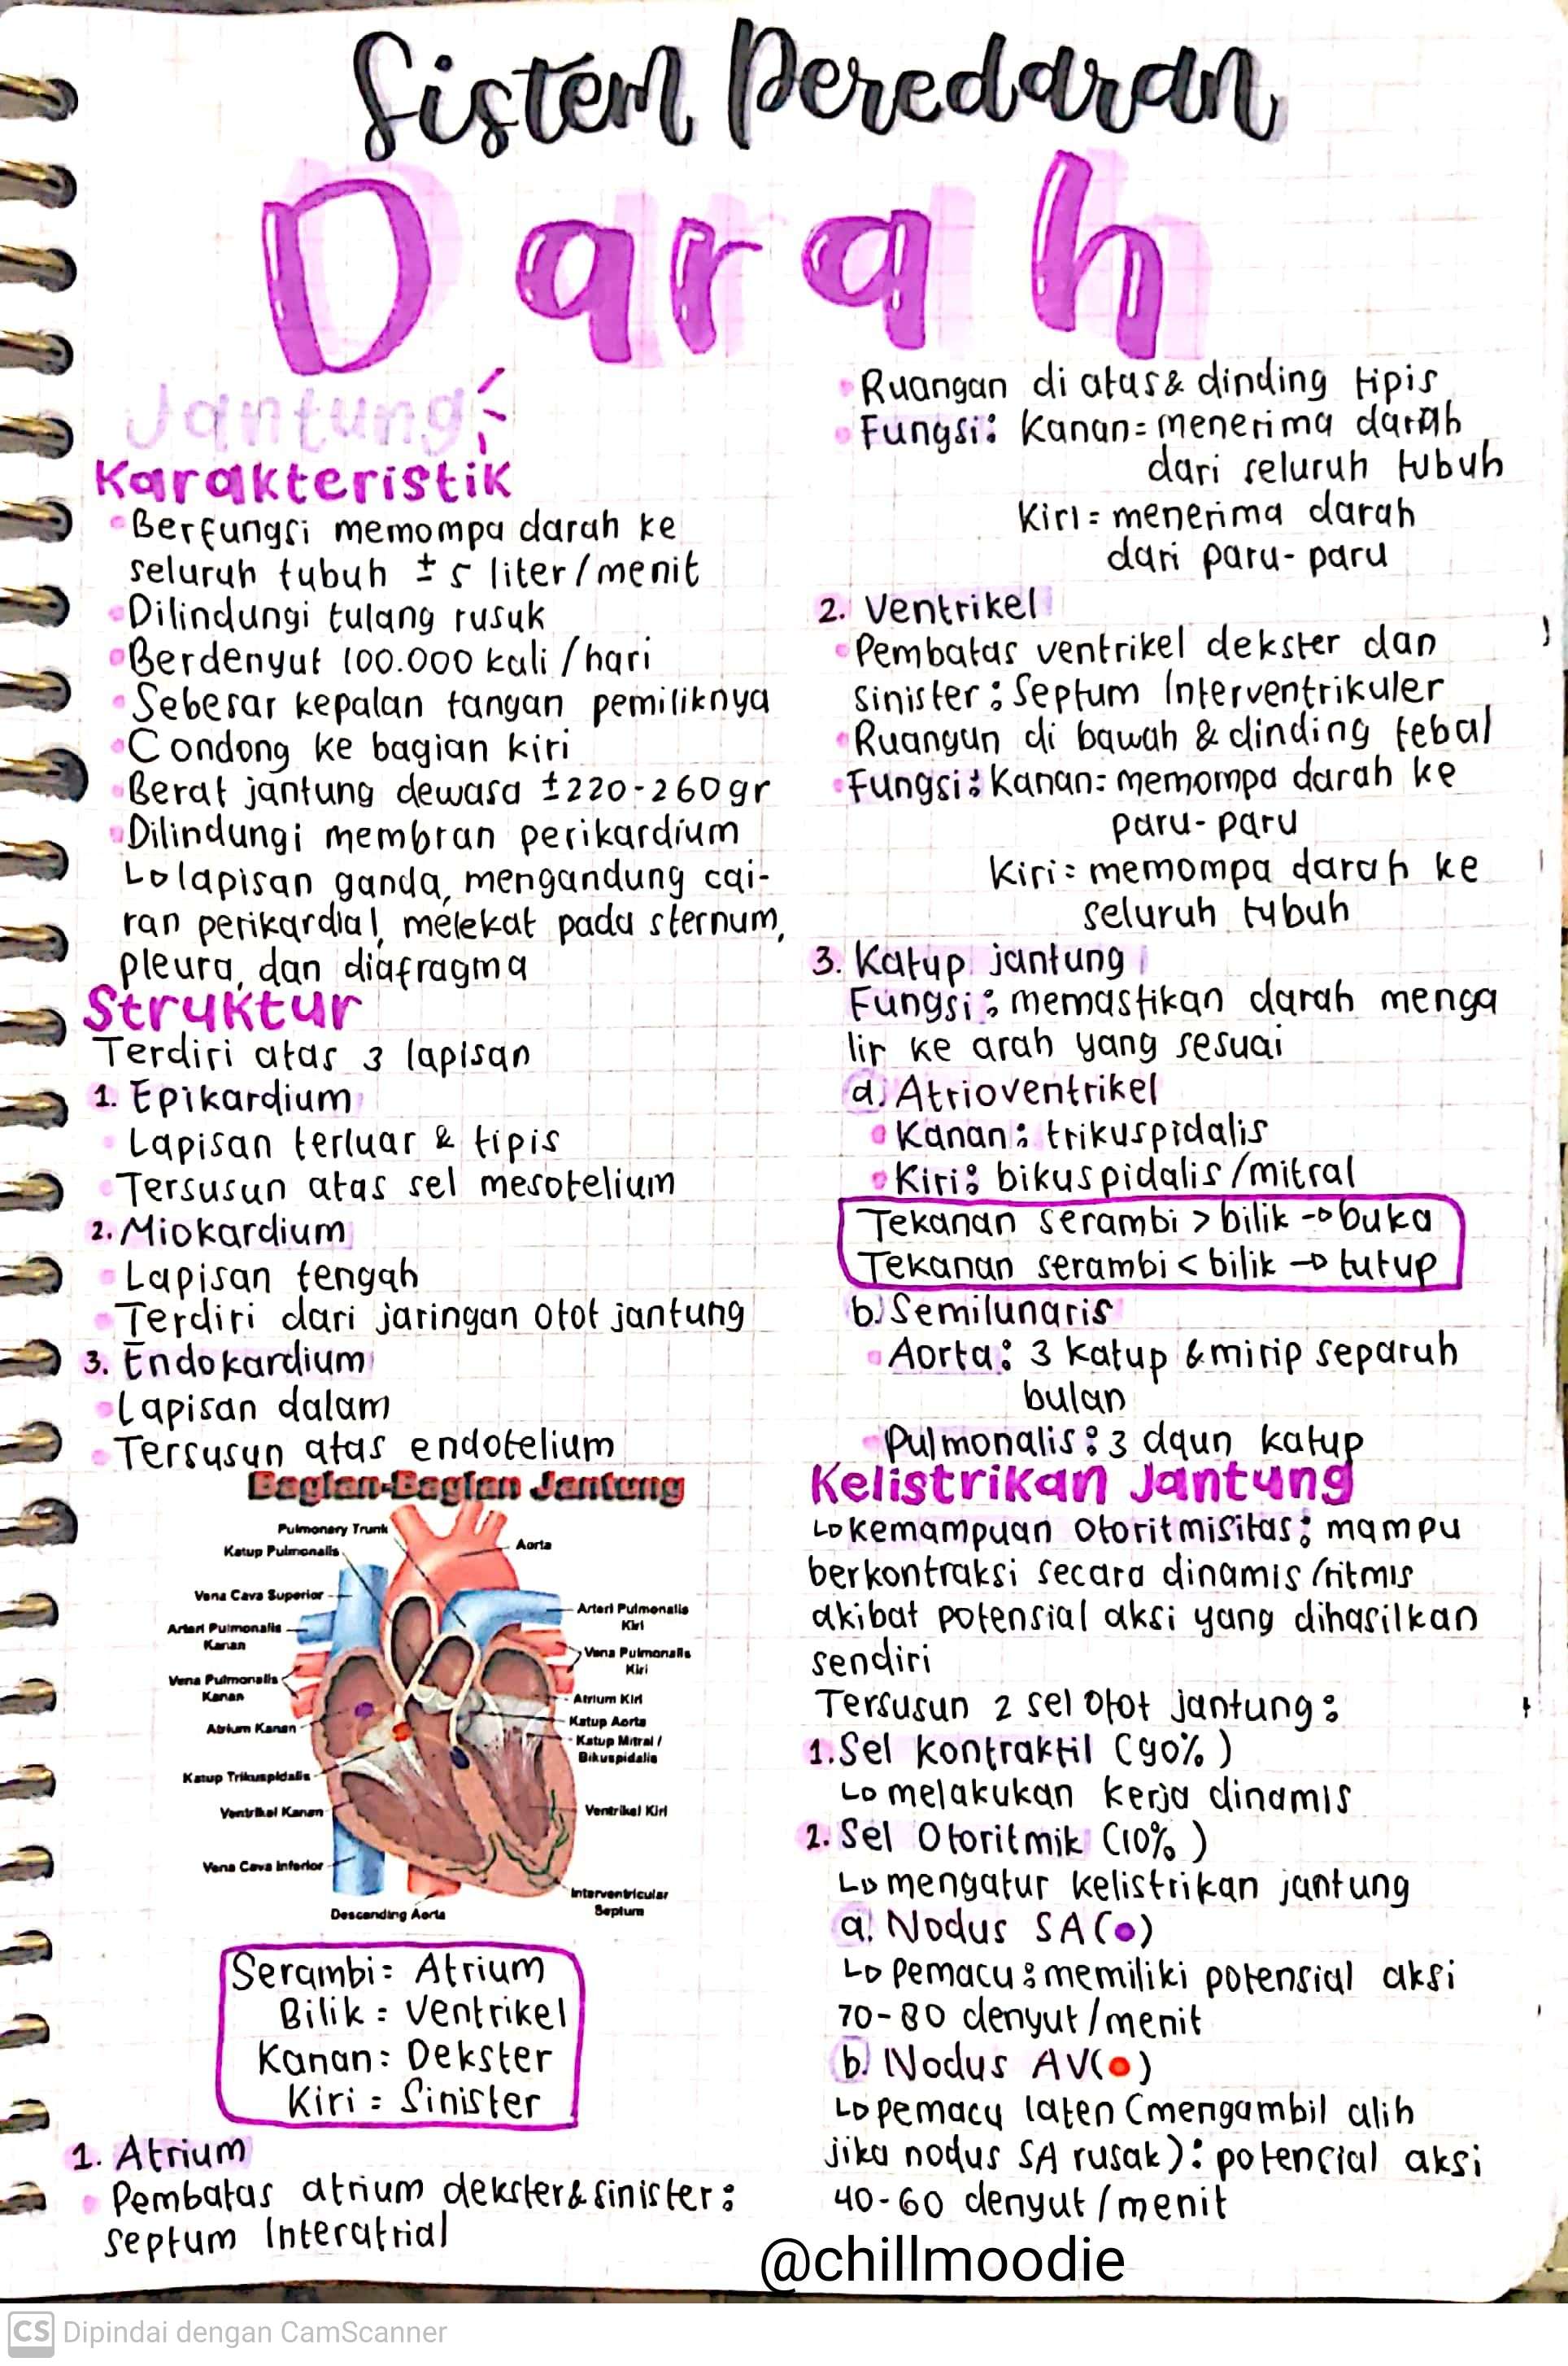 Sistem Peredaran
Darah
Jantung
Karakteristik
Berfungsi memompa darah ke
seluruh tubuh ± 5 liter/menit
Dilindungi tulang rusuk
Berdenyut 100.000 kali/hari
Sebesar kepalan tangan pemiliknya
Condong ke bagian kiri
Berat jantung dewasa ±220-260gr
Dilindungi membran perikardium
↳lapisan ganda, mengandung cai-
ran perikardial, melekat pada sternum,
pleura, dan diafragma
Struktur
Terdiri atas 3 lapisan
1. Epikardium
Lapisan terluar & tipis
Tersusun atas sel mesotelium
2. Miokardium
Lapisan tengah
Terdiri dari jaringan otot jantung
3. Endokardium
Lapisan dalam
Tersusun atas endotelium
Bagian-Bagian Jantung
Pulmonary Trunk
Katup Pulmonalis
Aorta
Vena Cava Superior
Arteri Pulmonalis
Kanan
Arteri Pulmonalis
Kiri
Vena Pulmonalis
Kanan
Vena Pulmonalis
Kiri
Atrium Kiri
Atrium Kanan
Katup Aorta
Katup Mitral /
Bikuspidalis
Katup Trikuspidalis
Ventrikel Kanan
Ventrikel Kiri
Vena Cava Inferior
Interventricular
Septum
Descending Aorta
Serambi = Atrium
Bilik = Ventrikel
Kanan = Dekster
Kiri = Sinister
1. Atrium
Pembatas atrium dekster&sinister:
septum Interatrial
Ruangan di atas & dinding tipis
Fungsi: Kanan = menerima darah
dari seluruh tubuh
Kiri = menerima darah
dari paru-paru
2. Ventrikel
Pembatas ventrikel dekster dan
sinister : Septum Interventrikuler
Ruangan di bawah & dinding tebal
Fungsi: Kanan = memompa darah ke
paru-paru
Kiri = memompa darah ke
seluruh tubuh
3. Katup jantung
Fungsi : memastikan darah menga
lir ke arah yang sesuai
a. Atrioventrikel
Kanan : trikuspidalis
Kiri : bikuspidalis/mitral
Tekanan serambi > bilik → buka
Tekanan serambi < bilik → tutup
b. Semilunaris
Aorta : 3 katup & mirip separuh
bulan
Pulmonalis : 3 daun katup
Kelistrikan Jantung
↳kemampuan otoritmisitas : mampu
berkontraksi secara dinamis/ritmis
akibat potensial aksi yang dihasilkan
sendiri
Tersusun 2 sel otot jantung :
1. Sel kontraktil (90%)
↳ melakukan kerja dinamis
2. Sel Otoritmik (10%)
↳ mengatur kelistrikan jantung
a. Nodus SA(●)
↳ pemacu : memiliki potensial aksi
70-80 denyut/menit
b. Nodus AV(●)
↳ pemacu laten (mengambil alih
jika nodus SA rusak) : potensial aksi
40-60 denyut/menit
@chillmoodie
CS Dipindai dengan CamScanner